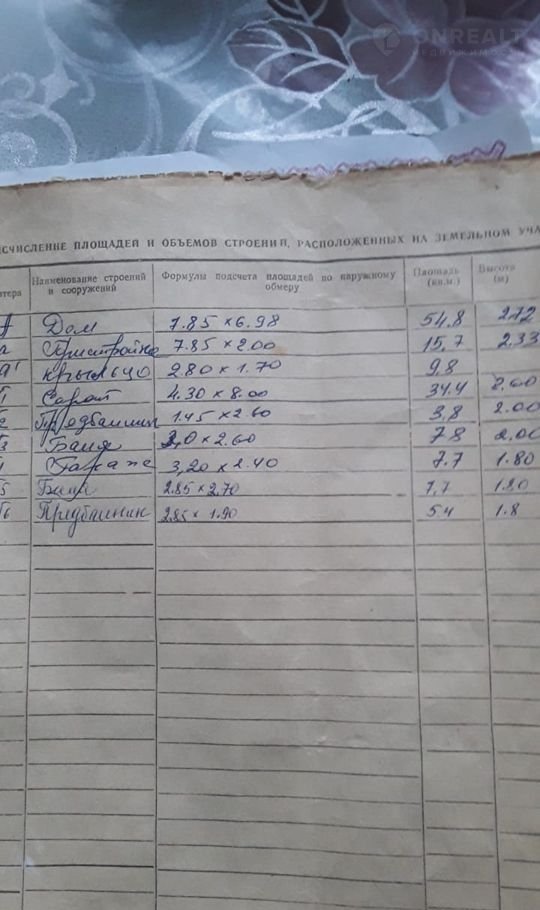 ONREALT
НЕДВИЖИМОСТЬ
ИСЧИСЛЕНИЕ ПЛОЩАДЕЙ И ОБЪЕМОВ СТРОЕНИЙ, РАСПОЛОЖЕННЫХ НА ЗЕМЕЛЬНОМ УЧА
итера Наименование строений и сооружений Формулы подсчета площадей по наружному обмеру Площадь (кв.м.) Высота (м)
Дом 7.85 × 6.98 54,8 2.12
а Пристройка 7.85 × 2.00 15,7 2.33
а' крыльцо 2.80 × 1.70 9.8
Сарай 4.30 × 8.00 34.4 2.60
Предбанник 1.45 × 2.60 3,8 2.00
Баня 3,0 × 2.60 78 2.00
Гараж 3,20 × 2.40 7.7 1.80
5 Баня 2.85 × 2.70 7,7 1.80
6 Предбанник 2.85 × 1.90 54 1.8